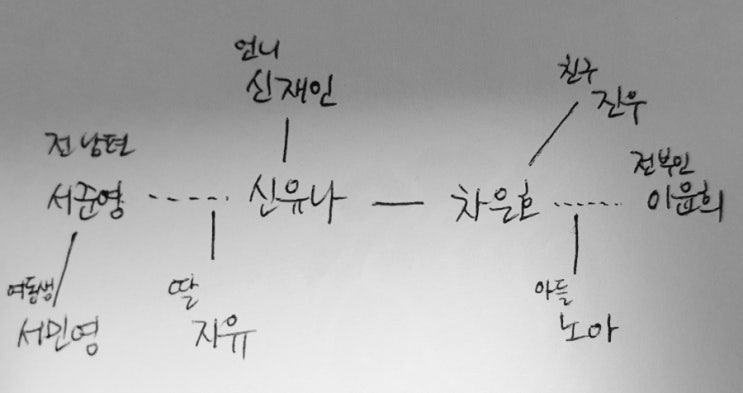 언니
신재인
친구
진우
전남편
서준영
신유나
차은호
전부인
이윤희
여동생
서민영
딸
자유
아들
노아